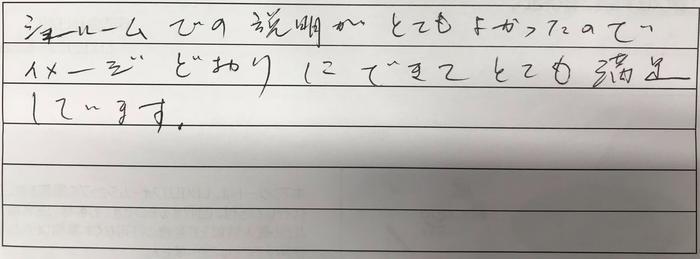 ショールームでの説明がとてもよかったので
イメージどおりにできてとても満足
しています。